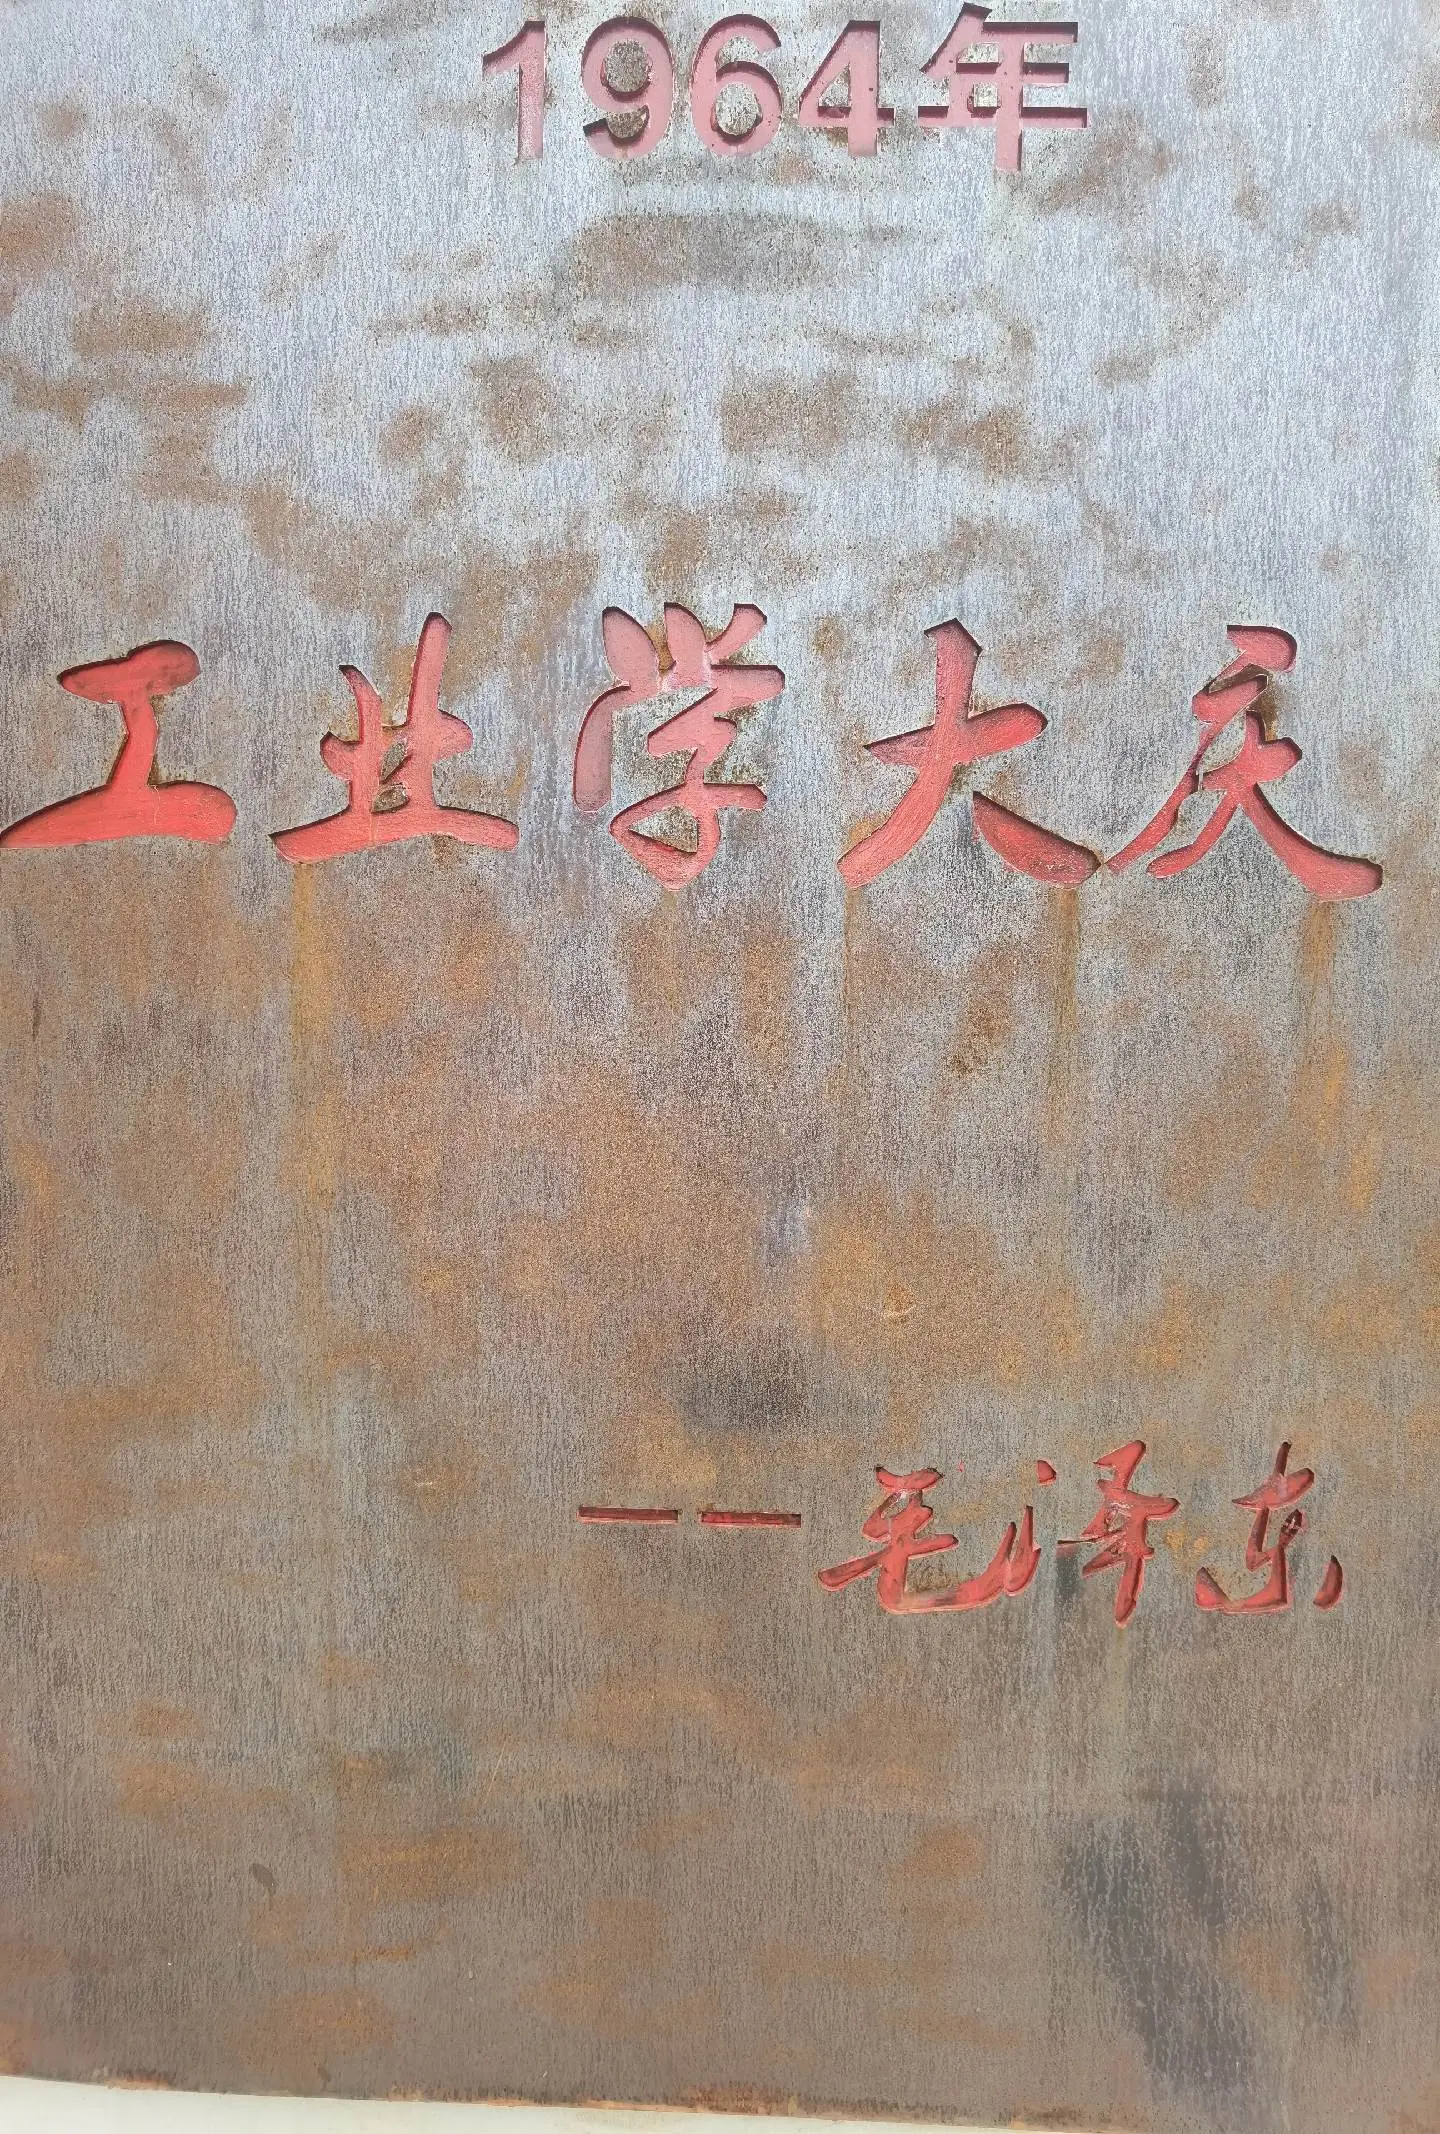 1964年
工业学大庆
——毛泽东